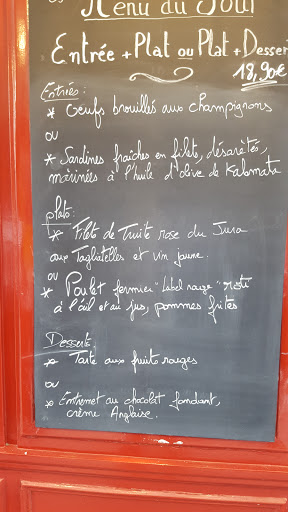 Menu du Jour
Entrée + Plat ou Plat + Dessert
18,90€
Entrées:
* Oeufs brouillés aux champignons
ou
* Sardines fraîches en filets, désarêtés,
marinées à l'huile d'olive de Kalamata
plats:
* Filet de Truite rose du Jura
aux Tagliatelles et vin jaune.
ou
* Poulet fermier "Label rouge" rôti
à l'ail et au jus, pommes frites
Desserts
* Tarte aux fruits rouges
ou
* Entremet au chocolat fondant,
crème Anglaise.